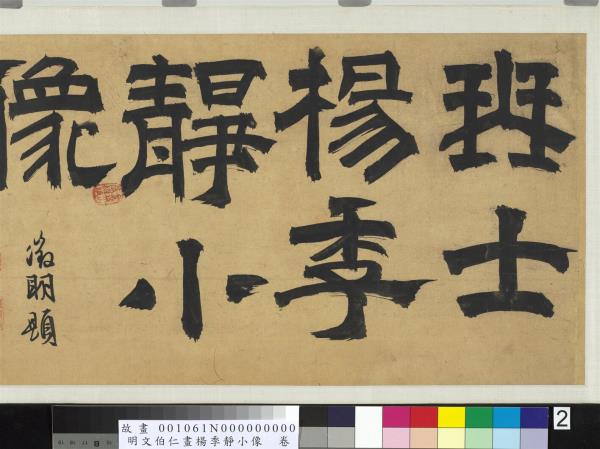 班士
楊季
靜小
像
徵明題
故畫 001061N000000000
明文伯仁畫楊季靜小像 卷
2